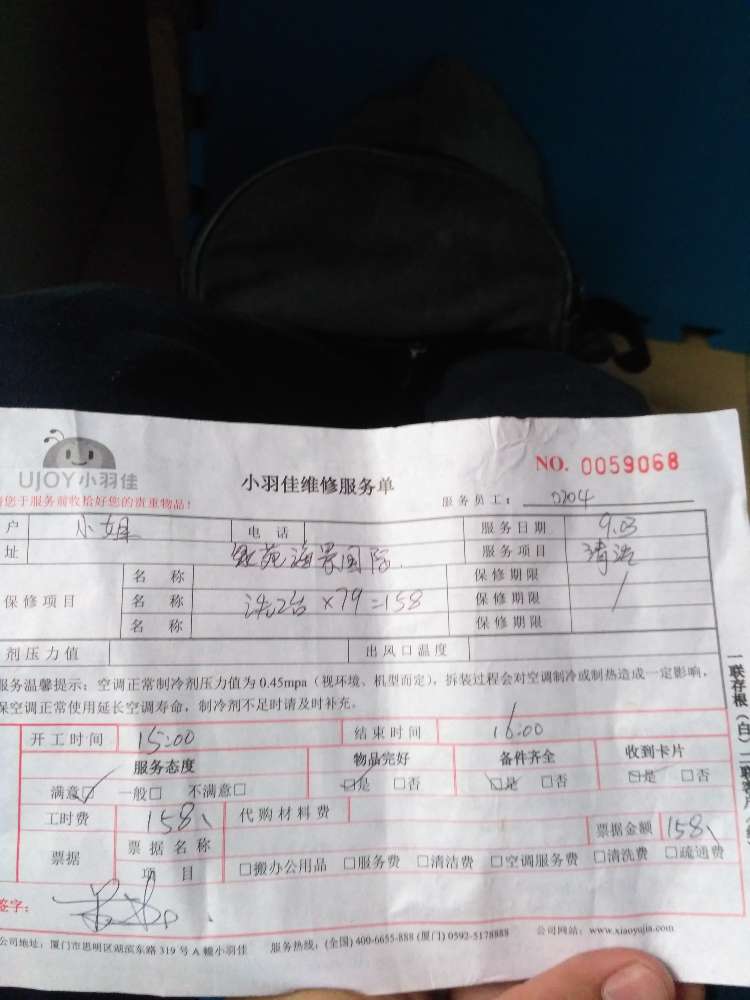 UJOY小羽佳
小羽佳维修服务单
NO. 0059068
您于服务前收拾好您的贵重物品！
服务员工： 0204
户 小姐 电话 服务日期 9.03
址 海景国际 服务项目 清洁
保修项目 名称 保修期限
名称 洗2台×79=158 保修期限 /
名称 保修期限
剂压力值 出风口温度
服务温馨提示：空调正常制冷剂压力值为 0.45mpa（视环境、机型而定），拆装过程会对空调制冷或制热造成一定影响，
保空调正常使用延长空调寿命，制冷剂不足时请及时补充。
开工时间 15:00 结束时间 16:00
服务态度 物品完好 备件齐全 收到卡片
满意☑ 一般□ 不满意□ ☑是 □否 ☑是 □否 ☑是 □否
工时费 158 代购材料费
票据 票据名称 票据金额 158
项目 □搬办公用品 □服务费 □清洁费 □空调服务费 □清洗费 □疏通费
签字：
公司地址：厦门市思明区湖滨东路 319 号 A 幢小羽佳 服务热线：(全国) 400-6655-888 (厦门) 0592-5178888 公司网站：www.xiaoyujia.com
一联存根（白）二联